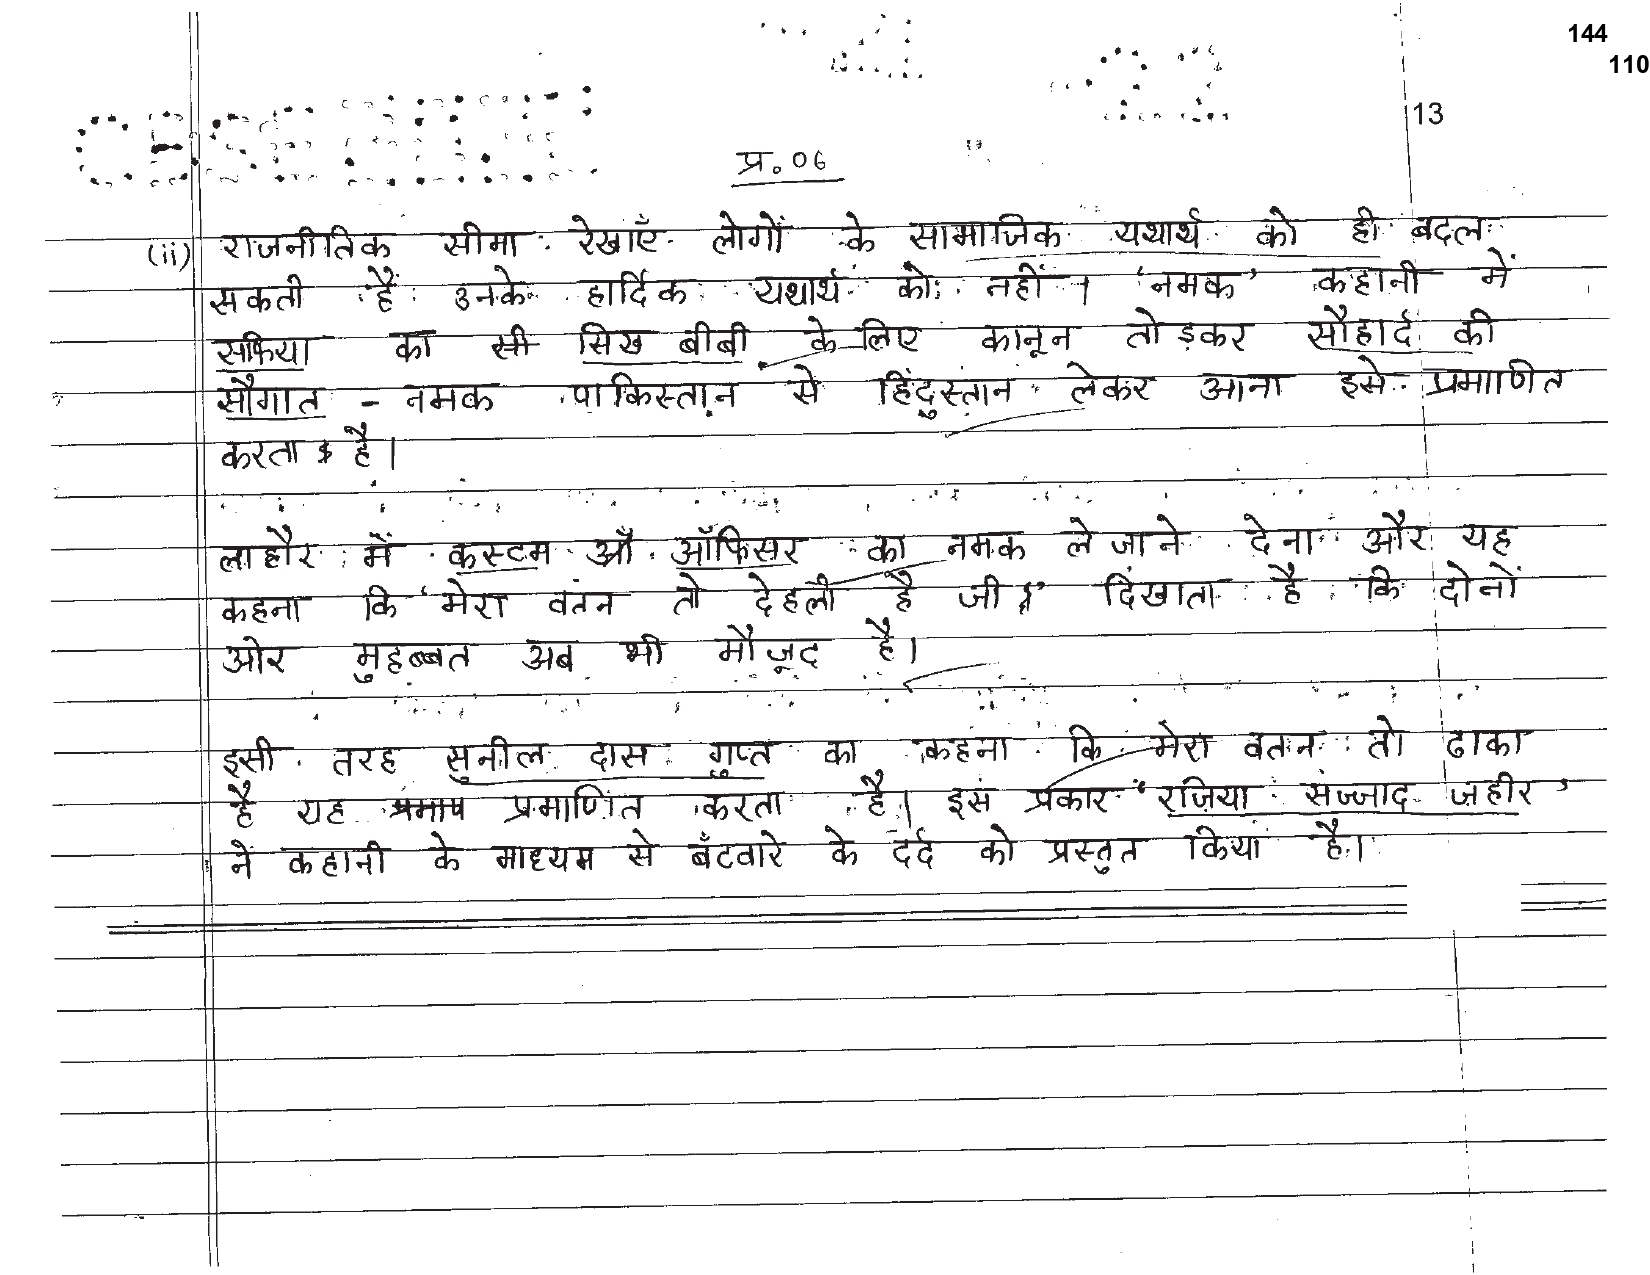 144
110
13
प्र. 06
(ii) राजनीतिक सीमा रेखाएँ लोगों के सामाजिक यथार्थ को ही बदल
सकती हैं उनके हार्दिक यथार्थ को नहीं । 'नमक' कहानी में
सफिया का सिख बीबी के लिए कानून तोड़कर सौहार्द की
सौगात - नमक पाकिस्तान से हिंदुस्तान लेकर आना इसे प्रमाणित
करता है।
लाहौर में कस्टम ऑफिसर का नमक ले जाने देना और यह
कहना कि 'मेरा वतन तो देहली है जी' दिखाता है कि दोनों
ओर मुहब्बत अब भी मौजूद है।
इसी तरह सुनील दास गुप्त का कहना कि मेरा वतन तो ढाका
है यह प्रमाणित करता है। इस प्रकार 'रजिया सज्जाद जहीर'
ने कहानी के माध्यम से बँटवारे के दर्द को प्रस्तुत किया है।